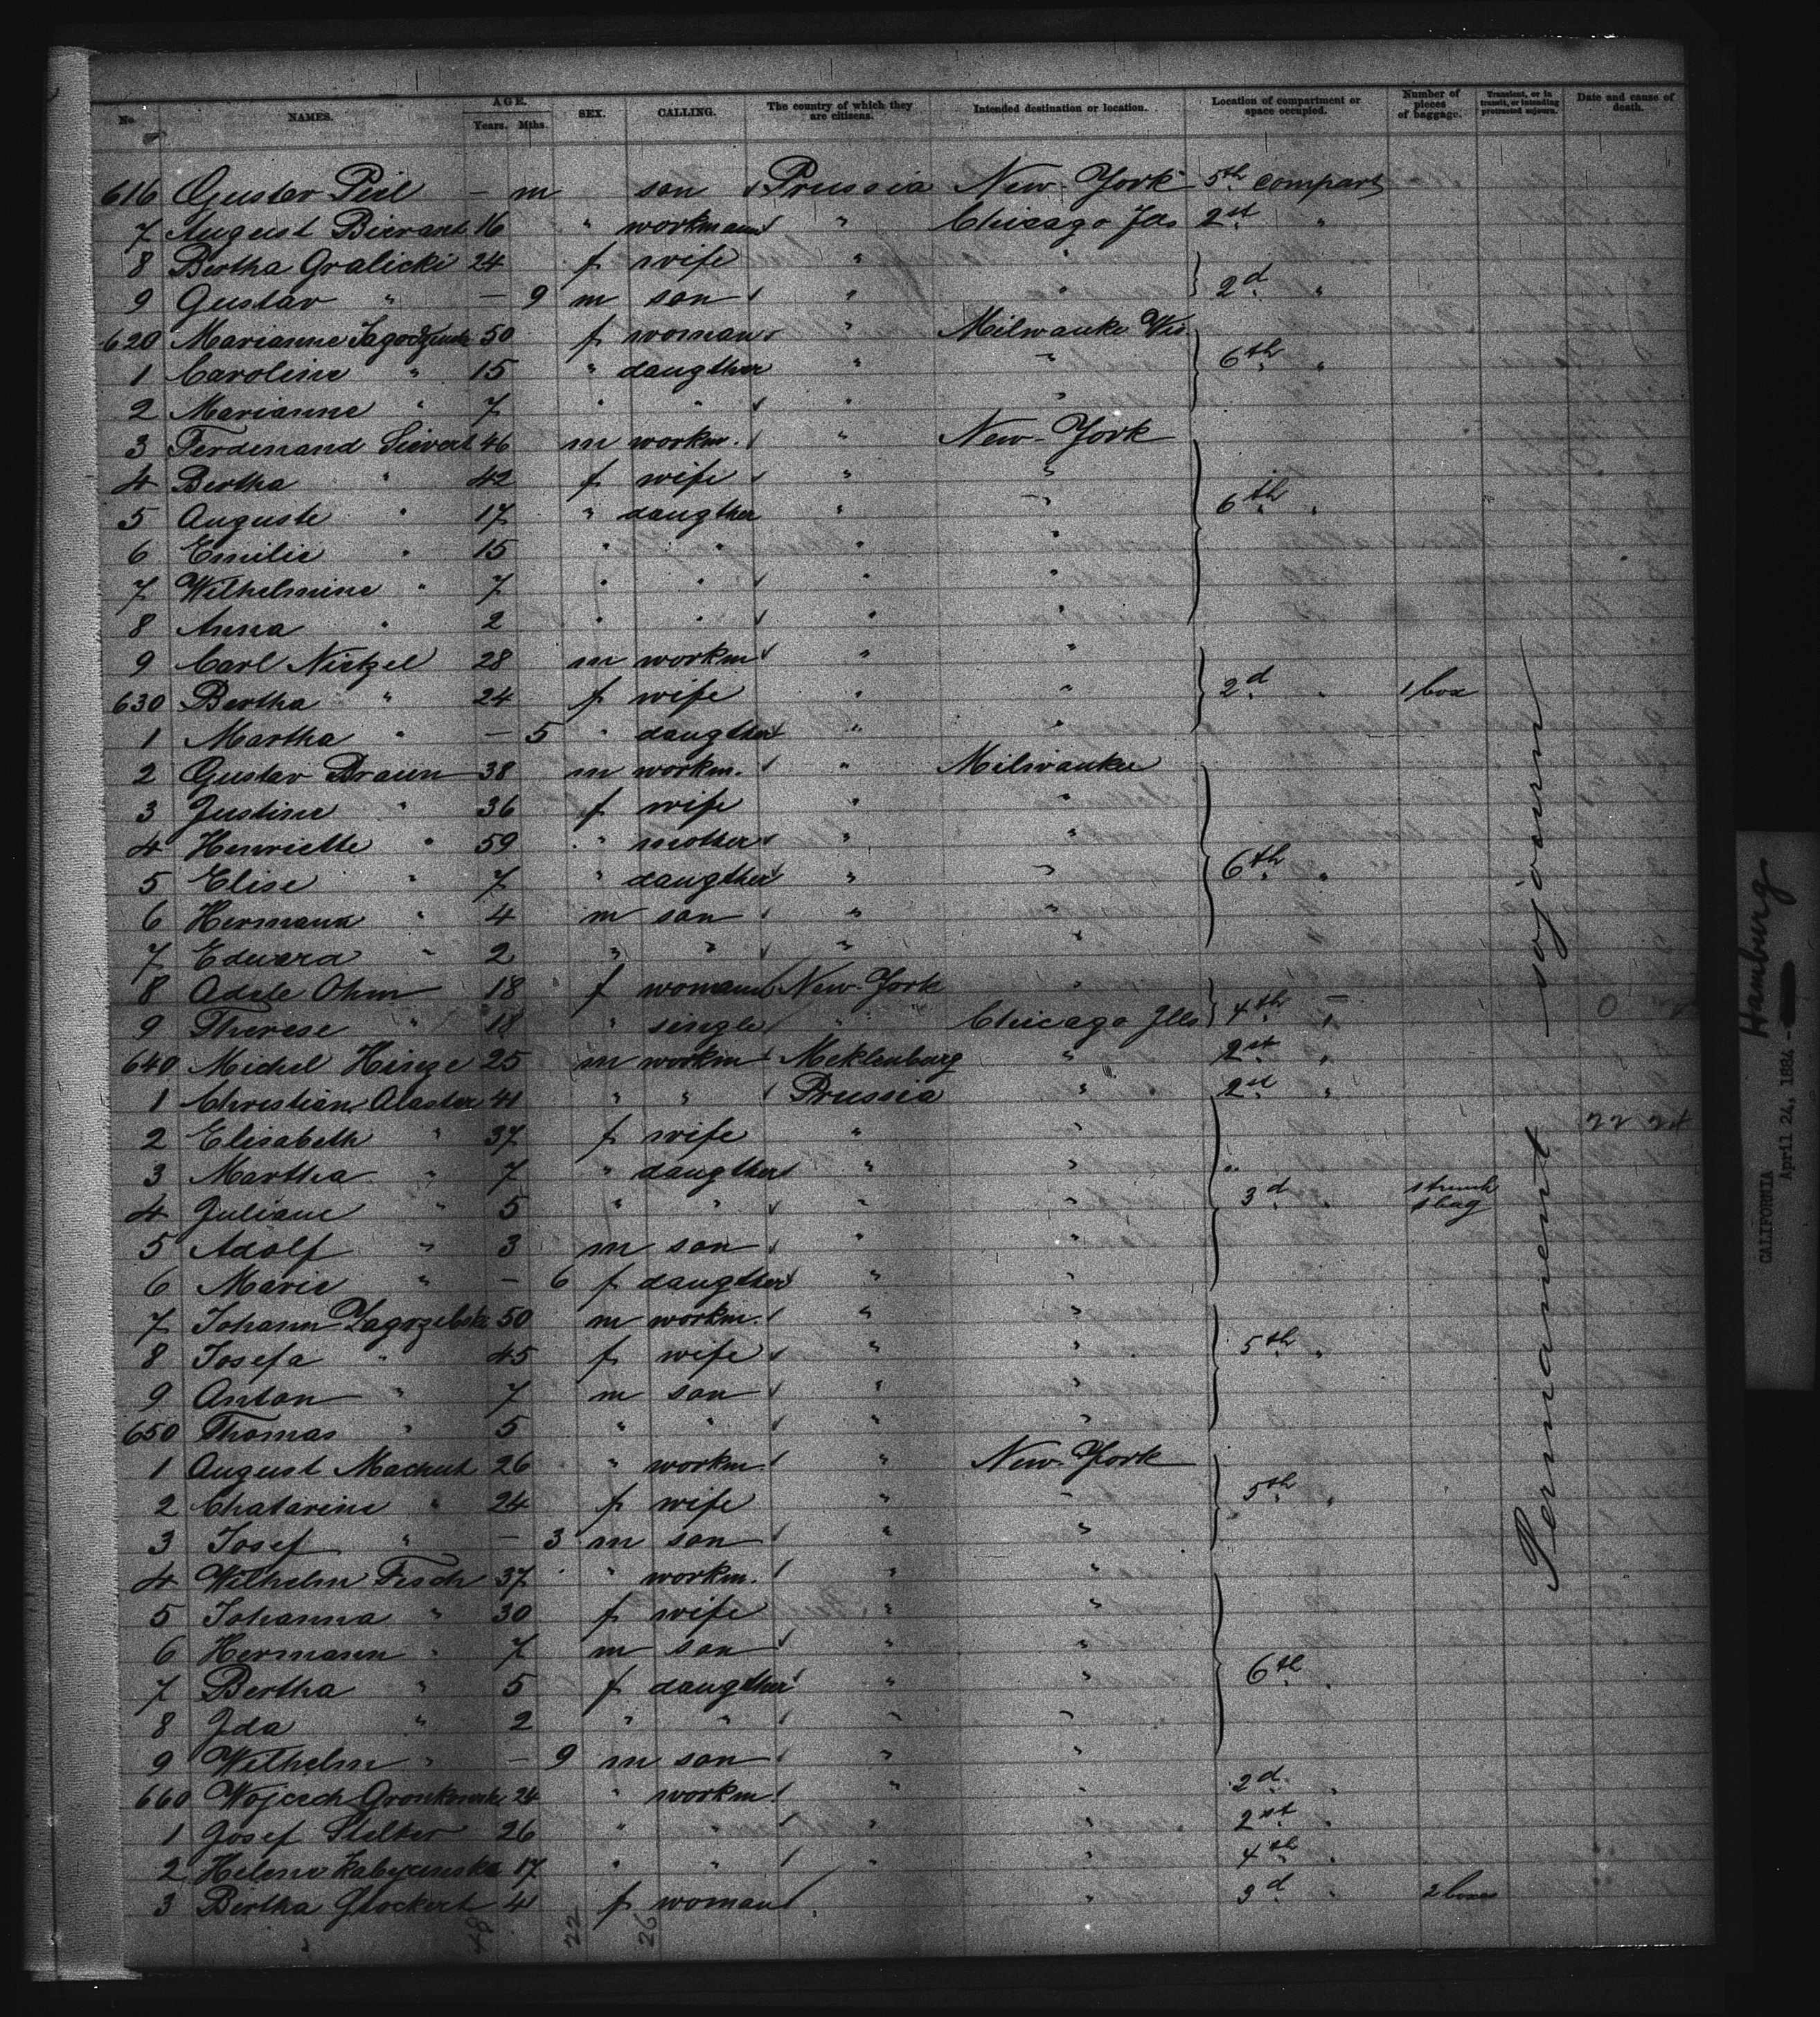 No. NAMES. AGE. Years. Mths. SEX. CALLING. The country of which they are citizens. Intended destination or location. Location of compartment or space occupied. Number of pieces of baggage. Transient, or in transit, or intending protracted sojourn. Date and cause of death.
616 Gustav Peil — m son Prussia New-York 5th compart
7 August 16 " workmann " Chicago Ills 2st "
8 Bertha Gralicki 24 f wife " "
9 Gustav " — 9 m son " " 2d "
620 Marianne 50 f woman " Milwauke Wis
1 Caroline " 15 " daugther " " 6th "
2 Marianne " 7 " " " "
3 Ferdinand Sievert 46 m workm. " New-York
4 Bertha " 42 f wife " "
5 Auguste " 17 " daugther " " 6th "
6 Emilie " 15 " " " "
7 Wilhelmine " 7 " " " "
8 Anna " 2 " " " "
9 Carl Nietzel 28 m workm " "
630 Bertha " 24 f wife " " 2d " 1 box
1 Martha " — 5 " daugther " "
2 Gustav Braun 38 m workm. " Milwaukee
3 Justine " 36 f wife " "
4 Henriette " 59 " mother " "
5 Elise " 7 " daugther " " 6th "
6 Hermann " 4 m son " "
7 Eduard " 2 " " " "
8 Adele Ohm 18 f womann New-York "
9 Therese " 18 " single " Chicago Ills 4th "
640 Michel Hinze 25 m workm Meklenburg " 2st "
1 Christian Alaster 41 " " Prussia " 2st "
2 Elisabeth " 37 f wife " "
3 Martha " 7 " daugther " "
4 Juliane " 5 " " " " 3d " 1 trunk 1 bag
5 Adolf " 3 m son " "
6 Marie " — 6 f daugther " "
7 Johann 50 m workm. " "
8 Josefa " 45 f wife " " 5th "
9 Anton " 7 m son " "
650 Thomas " 5 " " " "
1 August Machut 26 " workm. " New-York
2 Chatarine " 24 f wife " " 5th "
3 Josef " — 3 m son " "
4 Wilhelm Fisch 37 " workm. " "
5 Johanna " 30 f wife " "
6 Hermann " 7 m son " "
7 Bertha " 5 f daugther " " 6th "
8 Ida " 2 " " " "
9 Wilhelm " — 9 m son " "
660 Wojcech 24 " workm. " " 2d "
1 Josef Stelter 26 " " " " 2st "
2 Helene 17 " " " " 4th "
3 Bertha Glockert 41 f woman " 3d " 2 boxes
48 22 26
Permanent sojourn
22 24
Hamburg
CALIFORNIA April 24, 1884